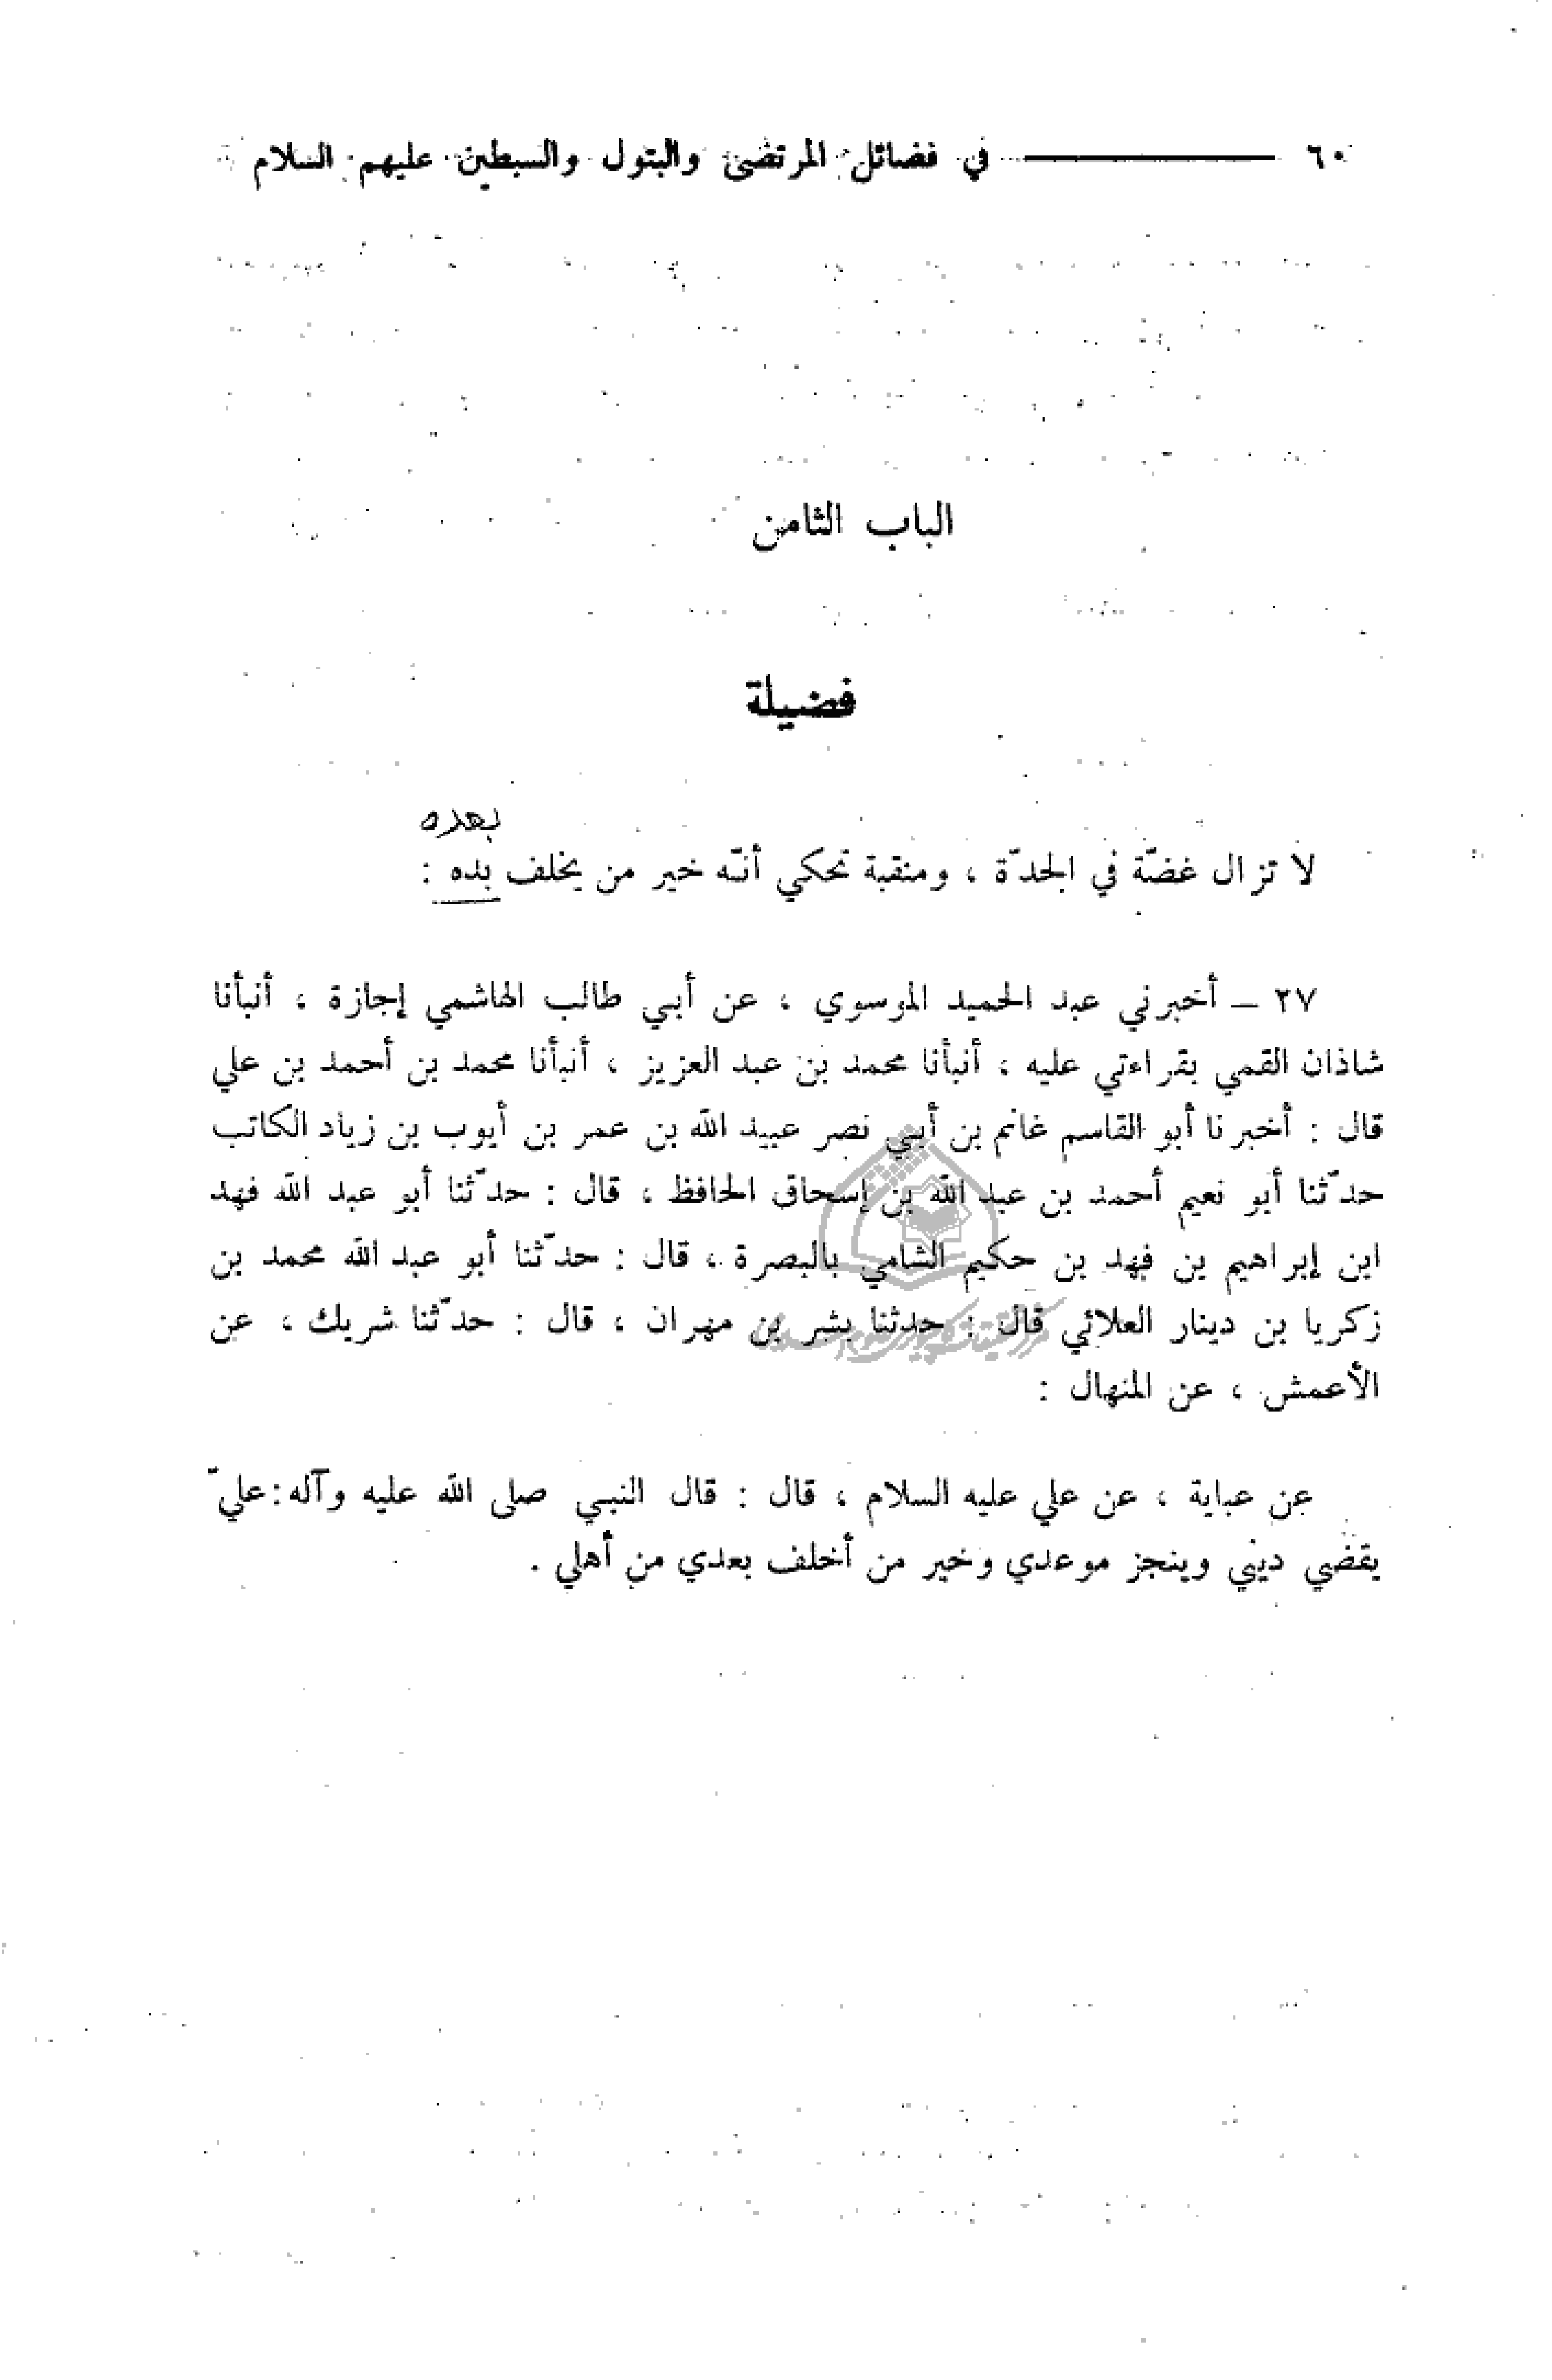 ٦٠ ــــــــــــ في فضائل المرتضى والبتول والسبطين عليهم السلام
الباب الثامن
فضيلة
بعده
لا تزال غضّة في الجدّة ، ومنقبة تحكي أنّه خير من يخلف بده :
٢٧ ــ أخبرني عبد الحميد الموسوي ، عن أبي طالب الهاشمي إجازة ، أنبأنا
شاذان القمي بقراءتي عليه ، أنبأنا محمد بن عبد العزيز ، أنبأنا محمد بن أحمد بن علي
قال : أخبرنا أبو القاسم غانم بن أبي نصر عبيد الله بن عمر بن أيوب بن زياد الكاتب
حدّثنا أبو نعيم أحمد بن عبد الله بن إسحاق الحافظ ، قال : حدّثنا أبو عبد الله فهد
ابن إبراهيم بن فهد بن حكيم الشامي بالبصرة ، قال : حدّثنا أبو عبد الله محمد بن
زكريا بن دينار العلائي قال : حدثنا بشر بن مهران ، قال : حدّثنا شريك ، عن
الأعمش ، عن المنهال :
عن عباية ، عن علي عليه السلام ، قال : قال النبي صلى الله عليه وآله : عليّ
يقضي ديني وينجز موعدي وخير من أخلف بعدي من أهلي .